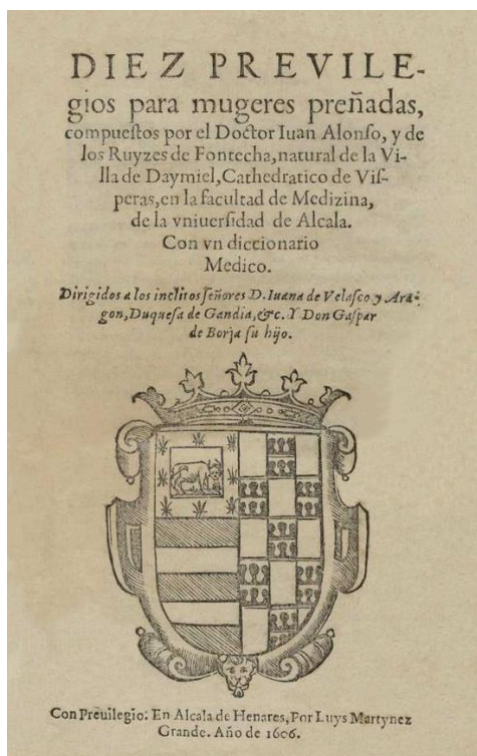 DIEZ PREVILE-
gios para mugeres preñadas,
compuestos por el Doctor Iuan Alonso, y de
los Ruyzes de Fontecha, natural de la Vi-
lla de Daymiel, Cathedratico de Vis-
peras, en la facultad de Medizina,
de la vniuersidad de Alcala.
Con vn diccionario
Medico.
Dirigidos a los inclitos señores D. Iuana de Velasco y Ara-
gon, Duquesa de Gandia, &c. Y Don Gaspar
de Borja su hijo.
Con Preuilegio: En Alcala de Henares, Por Luys Martynez
Grande. Año de 1606.